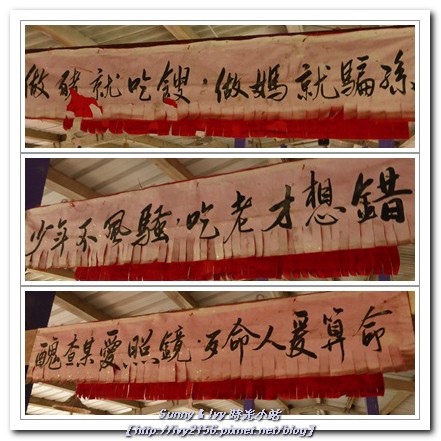 做豬就吃餿，做媽就騙孫
少年不風騷，吃老才想錯
醜查某愛照鏡，歹命人愛算命
Sunny & Ivy 時光小站
【http://ivy2156.pixnet.net/blog】